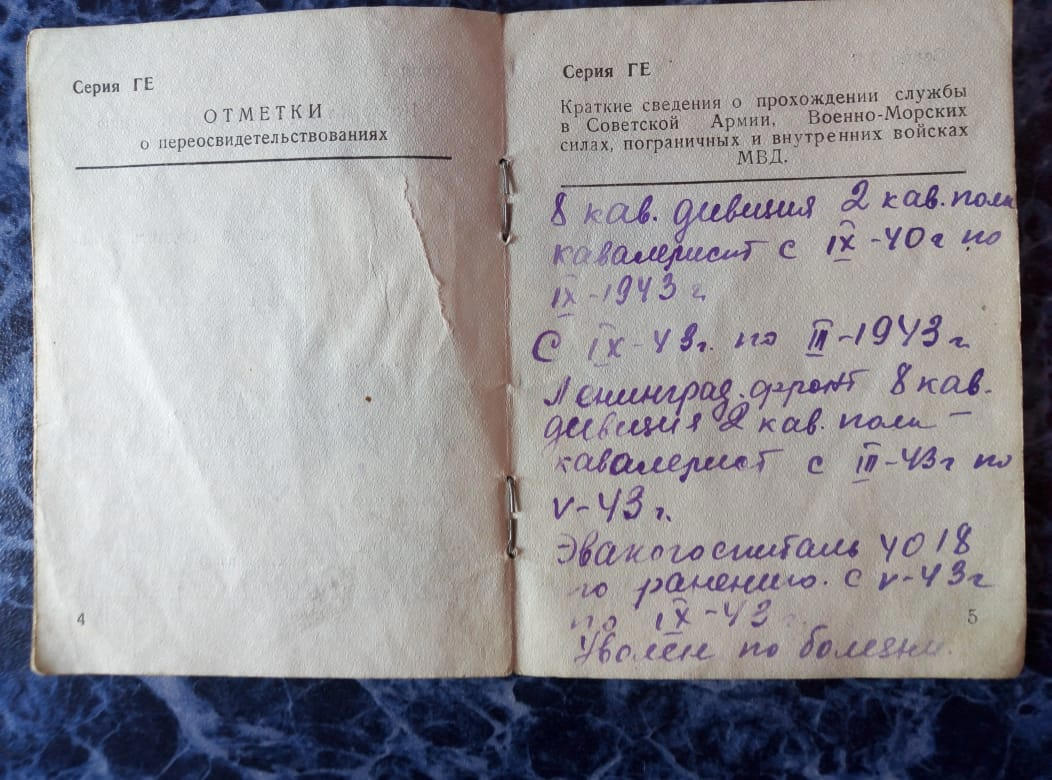 Серия ГЕ
ОТМЕТКИ
о переосвидетельствованиях
4
Серия ГЕ
Краткие сведения о прохождении службы
в Советской Армии, Военно-Морских
силах, пограничных и внутренних войсках
МВД.
8 кав. дивизия 2 кав. полк
кавалерист с IX-40 г по
IX-1943 г
С IX-43 г. по III-1943 г.
Ленинград. фронт 8 кав.
дивизия 2 кав. полк –
кавалерист с III-43 г по
V-43 г.
Эвакогоспиталь 4018
по ранению. с V-43 г
по IX-43 г.
Уволен по болезни.
5